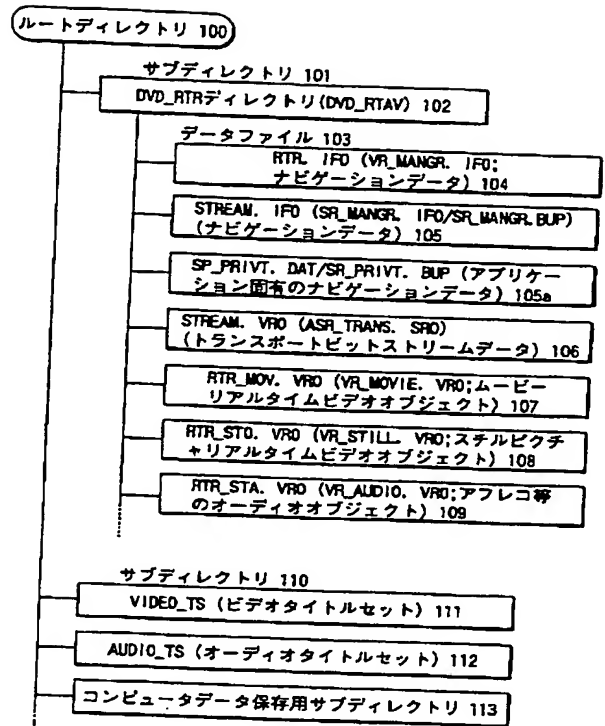 ルートディレクトリ 100
サブディレクトリ 101
DVD_RTRディレクトリ(DVD_RTAV) 102
データファイル 103
RTR. IFO (VR_MANGR. IFO;
ナビゲーションデータ) 104
STREAM. IFO (SR_MANGR. IFO/SR_MANGR.BUP)
(ナビゲーションデータ) 105
SP_PRIVT. DAT/SR_PRIVT. BUP (アプリケー
ション固有のナビゲーションデータ) 105a
STREAM. VRO (ASR_TRANS. SRO)
(トランスポートビットストリームデータ) 106
RTR_MOV. VRO (VR_MOVIE. VRO;ムービー
リアルタイムビデオオブジェクト) 107
RTR_STO. VRO (VR_STILL. VRO;スチルピクチ
ャリアルタイムビデオオブジェクト) 108
RTR_STA. VRO (VR_AUDIO. VRO;アフレコ等
のオーディオオブジェクト) 109
サブディレクトリ 110
VIDEO_TS (ビデオタイトルセット) 111
AUDIO_TS (オーディオタイトルセット) 112
コンピュータデータ保存用サブディレクトリ 113